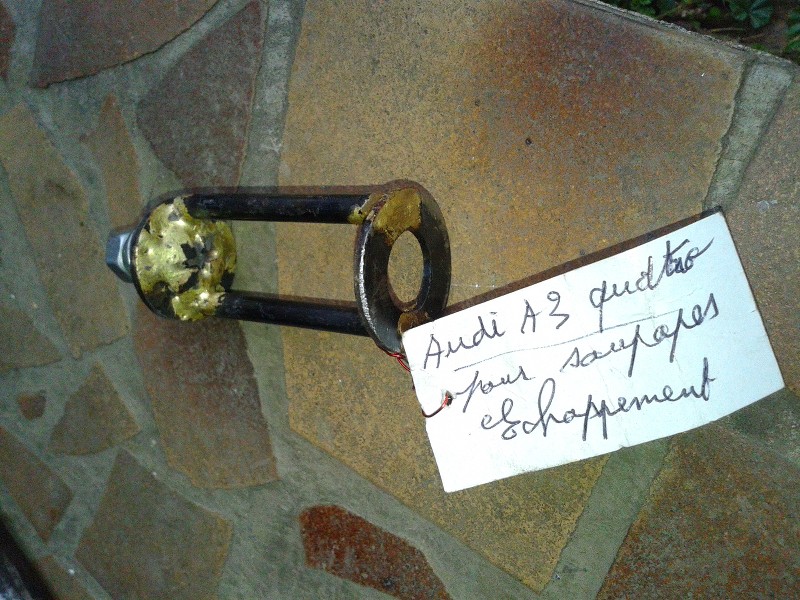 Audi A3 quatro
pour soupapes
Echappement